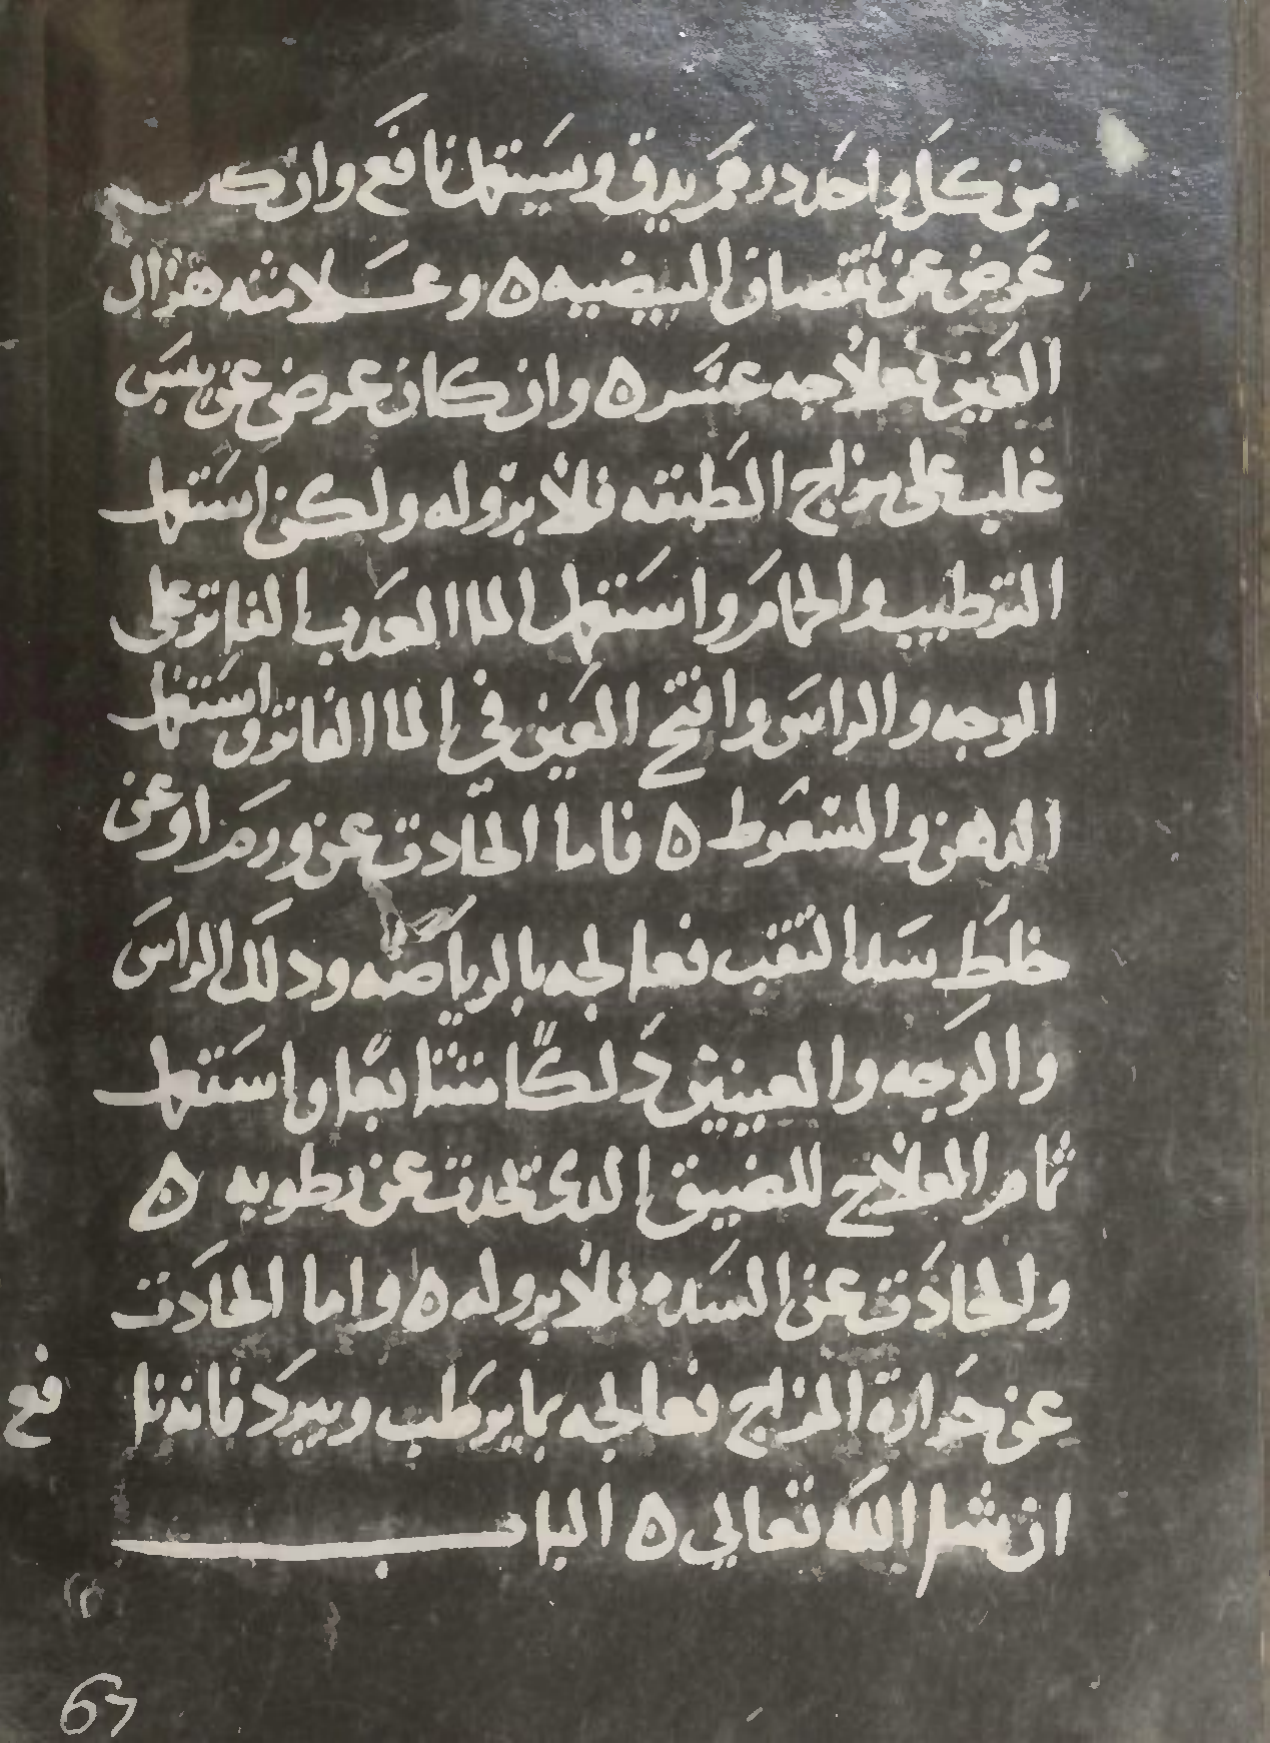 من كل واحد درهم يدق ويستعمل نافع وان كان
عرض عن نقصان البيضيه ه وعلامته هزال
العين فعلاجه عسر ه وان كان عرض عن يبس
غلب على مزاج الطبقه فلا برو له ولكن استعمل
الترطيب والحمام واستعمل الما العذب الفاتر على
الوجه والراس وافتح العين في الما الفاتر واستعمل
الدهن والسعوط ه فاما الحادث عن ورم او عن
خلط سد الثقب فعالجه بالرياضه ودلك الراس
والوجه والعينين دلكًا متتابعًا واستعمل
تمام العلاج للضيق الدى تحدث عن رطوبه ه
والحادث عن السده فلا برو له ه واما الحادث
عن حرارة المزاج فعالجه بما يرطب ويبرد فانه نا
فع
ان شا الله تعالى ه الباب
67